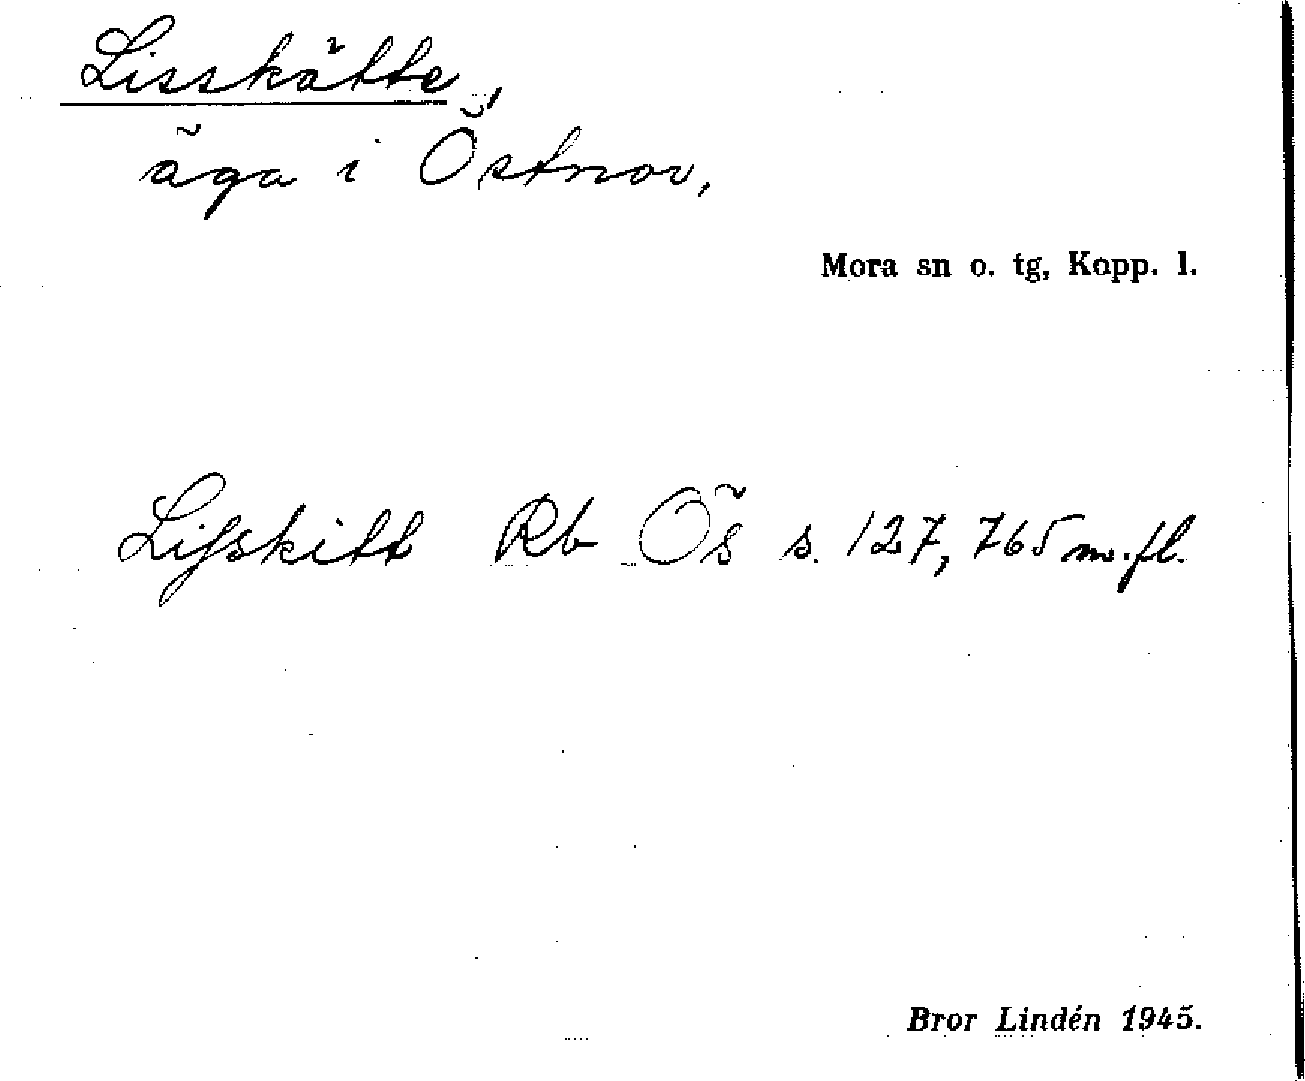 Lisskätte,
äga i Östnor,
Mora sn o. tg, Kopp. l.
Lisskitt Rb Ös s. 127, 765 m.fl.
Bror Lindén 1945.